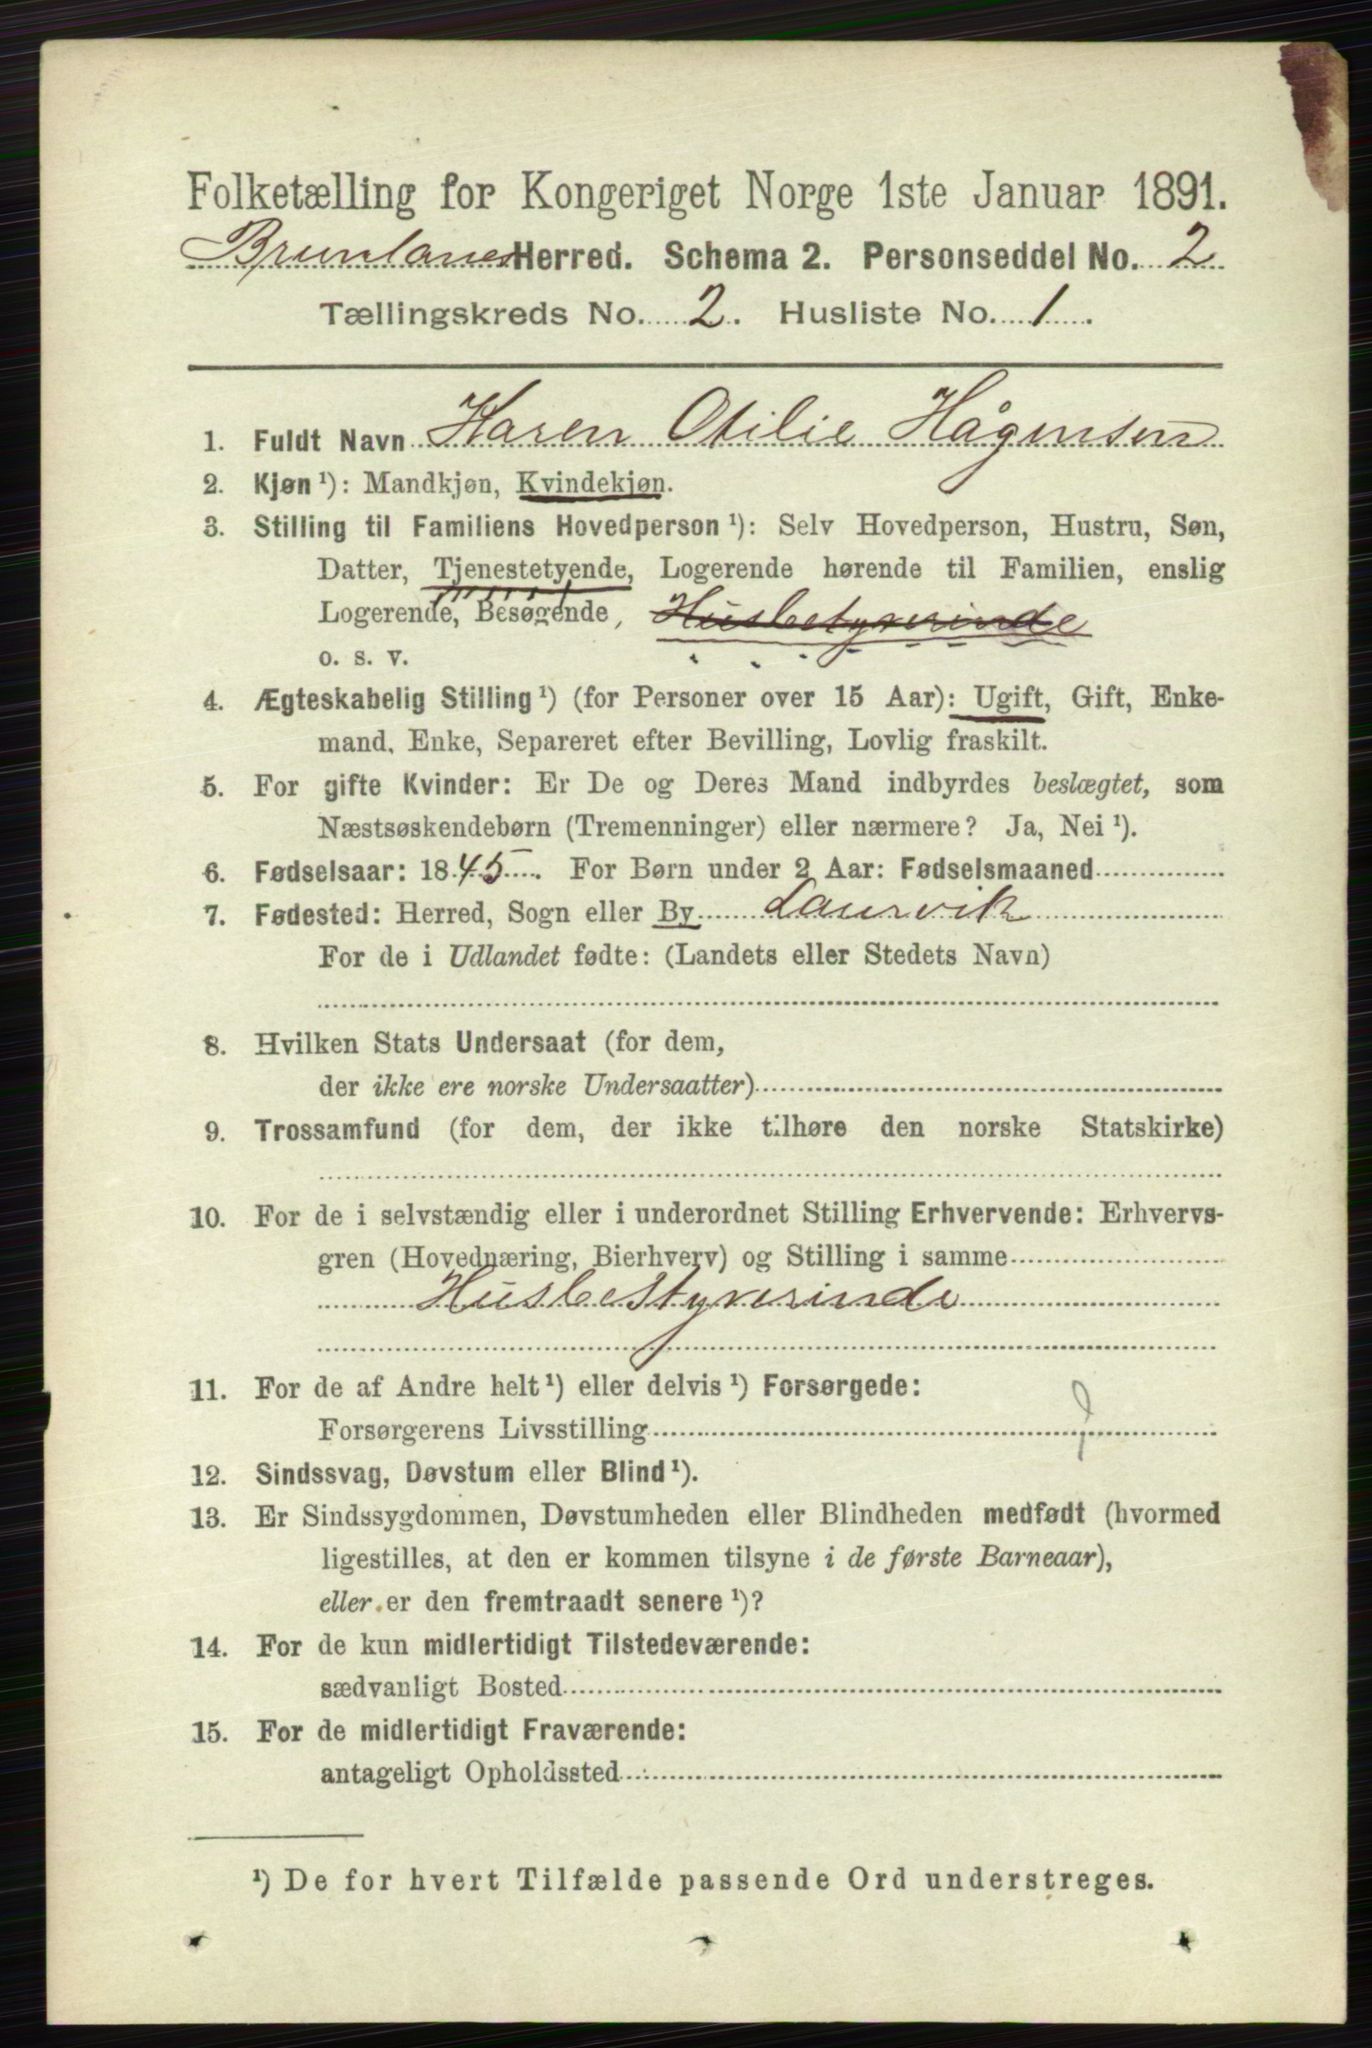 Folketælling for Kongeriget Norge 1ste Januar 1891.
Brunlanes Herred. Schema 2. Personseddel No. 2
Tællingskreds No. 2. Husliste No. 1.
1. Fuldt Navn Karen Otilie Hågensen
2. Kjøn ¹): Mandkjøn, Kvindekjøn.
3. Stilling til Familiens Hovedperson ¹): Selv Hovedperson, Hustru, Søn,
Datter, Tjenestetyende, Logerende hørende til Familien, enslig
Logerende, Besøgende, Husbestyrerinde
o. s. v.
4. Ægteskabelig Stilling ¹) (for Personer over 15 Aar): Ugift, Gift, Enke-
mand, Enke, Separeret efter Bevilling, Lovlig fraskilt.
5. For gifte Kvinder: Er De og Deres Mand indbyrdes beslægtet, som
Næstsøskendebørn (Tremenninger) eller nærmere? Ja, Nei ¹).
6. Fødselsaar: 1845. For Børn under 2 Aar: Fødselsmaaned
7. Fødested: Herred, Sogn eller By Laurvik
For de i Udlandet fødte: (Landets eller Stedets Navn)
8. Hvilken Stats Undersaat (for dem,
der ikke ere norske Undersaatter)
9. Trossamfund (for dem, der ikke tilhøre den norske Statskirke)
10. For de i selvstændig eller i underordnet Stilling Erhvervende: Erhvervs-
gren (Hovednæring, Bierhverv) og Stilling i samme
Husbestyrerinde
11. For de af Andre helt ¹) eller delvis ¹) Forsørgede:
Forsørgerens Livsstilling
12. Sindssvag, Døvstum eller Blind ¹).
13. Er Sindssygdommen, Døvstumheden eller Blindheden medfødt (hvormed
ligestilles, at den er kommen tilsyne i de første Barneaar),
eller er den fremtraadt senere ¹)?
14. For de kun midlertidigt Tilstedeværende:
sædvanligt Bosted
15. For de midlertidigt Fraværende:
antageligt Opholdssted
¹) De for hvert Tilfælde passende Ord understreges.